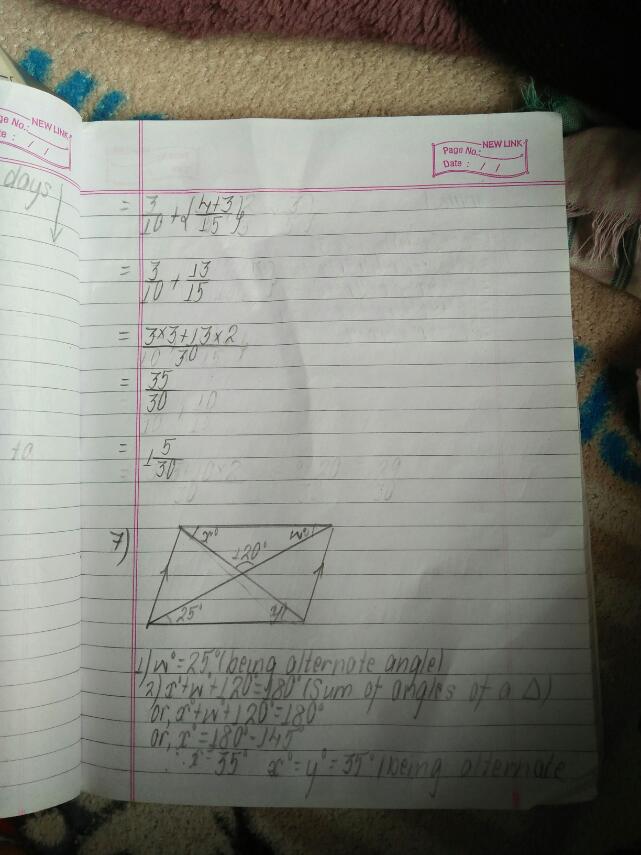 ge No.: NEW LINK
te : / /
days
to
NEW LINK
Page No.:
Date : / /
= 3/10 + {4+3/15}
= 3/10 + 13/15
= 3×3+13×2/30
= 35/30
= 1 5/30
7)
x° w°
120°
25° y°
1) w° = 25° (being alternate angle)
2) x°+w°+120°=180° (Sum of angles of a △)
or, x°+w°+120°=180°
or, x°=180°-145°
∴ x°=35° x°=y°=35° (being alternate